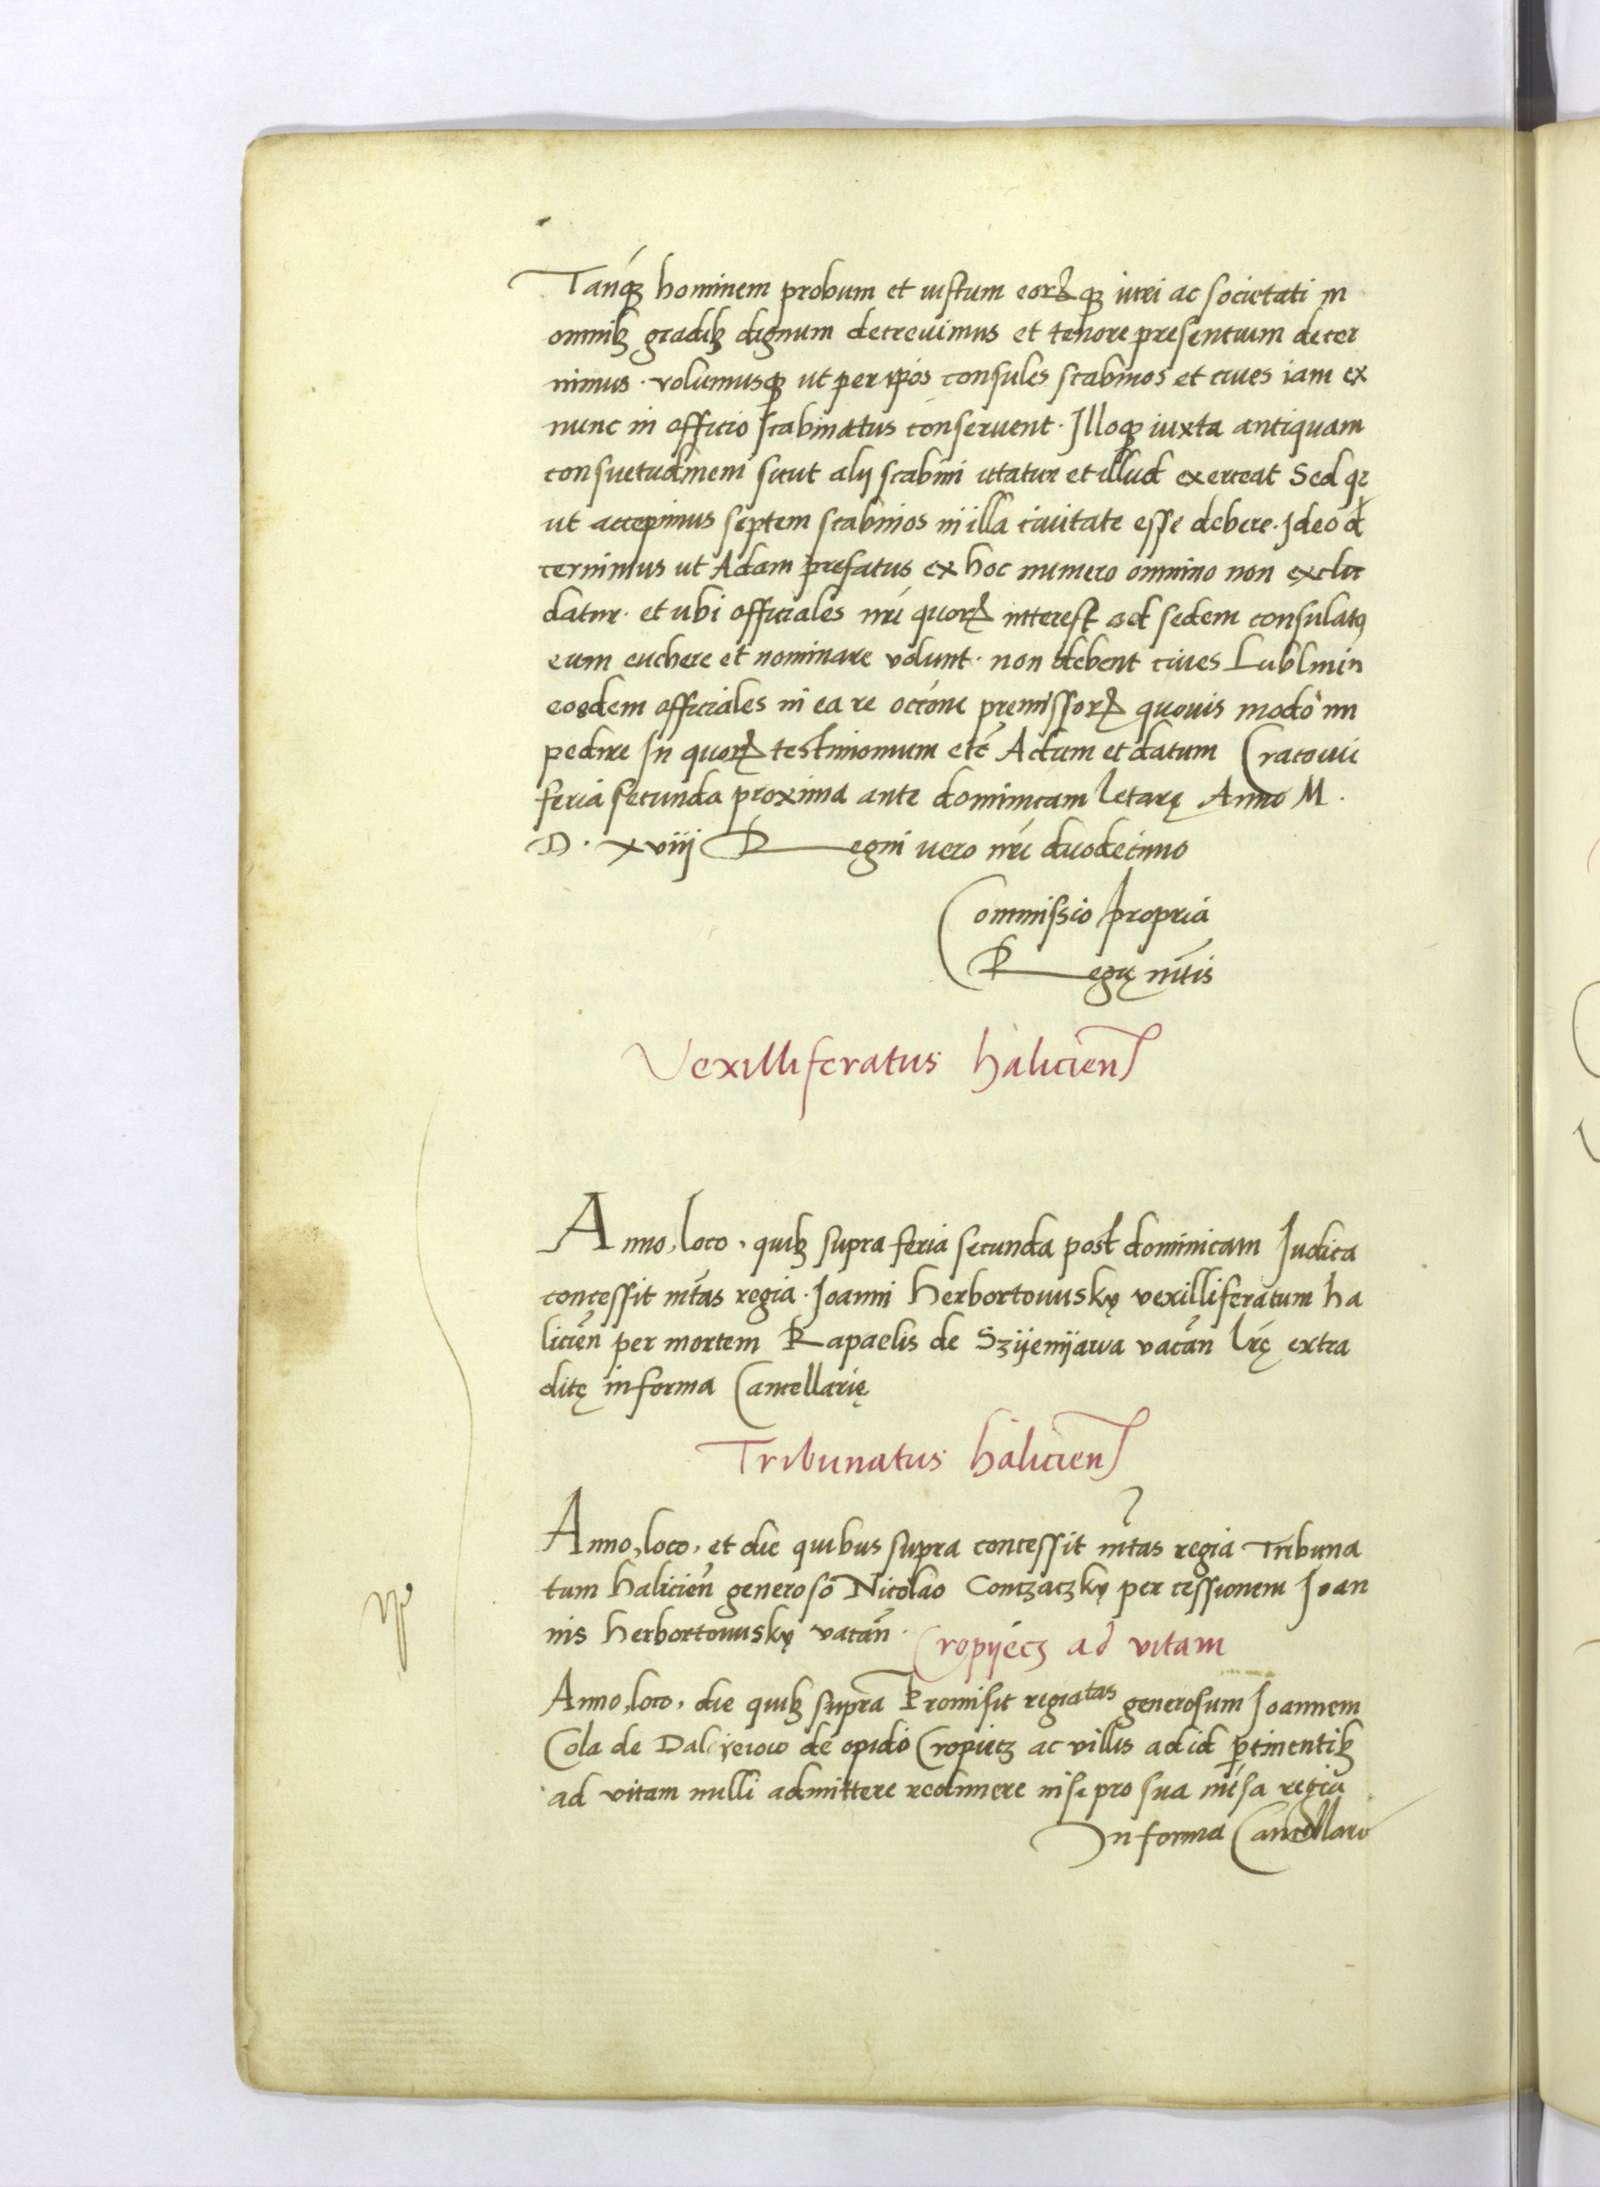 Tanq́ꝫ hominem probum et iustum eorꝝqꝫ iuri ac societati in
omnibꝫ gradibꝫ dignum decreuimus et tenore presentium decer
nimus . volumusqꝫ ut per ip̄os consules scabinos et ciues iam ex
nunc in officio scabinatus conseruent . Illoqꝫ iuxta antiquam
consuetudinem sicut alij scabini utatur et illud exerceat Sed qꝛ
ut accepimus septem scabinos in illa ciuitate esse debere . Ideo d
cernimus ut Adam prefatus ex hoc numero omnino non exclu
datur . et ubi officiales nr̄i quorꝝ interest ad sedem consulatꝰ
eum euehere et nominare volunt . non debent ciues Lublinin
eosdem officiales in ea re occōne premissorꝝ quouis modo im
pedire In quorꝝ testimonium etc̄ Actum et datum Cracouie
feria secunda proxima ante dominicam Letarę Anno M .
D . xviij Regni vero nr̄i duodecimo
Commissio propria
Regię mt̄is
Vexilliferatus halicien̄
Anno, loco . quibꝫ supra feria secunda post dominicam Judica
concessit mt̄as regia . Joanni Herbortowskÿ vexilliferatum ha
licien̄ per mortem Rapaelis de Szÿenÿawa vacan̄ lrę̄ extra
ditę in forma Cancellarię
Tribunatus halicien̄
Anno, loco . et die quibus supra concessit mt̄as regia Tribuna
tum halicien̄ generoso Nicolao Conczaczkÿ per cessionem Joan
nis herbortowskÿ vacan̄ .
Cropÿecz ad vitam
Anno, loco . die quibꝫ supra Promisit regia tas generosum Joannem
Cola de de opido Cropiecz ac villis ad id ꝑtinentibꝫ
ad vitam nulli admittere redimere nisi pro sua mēsa regia
In forma Cancellarie